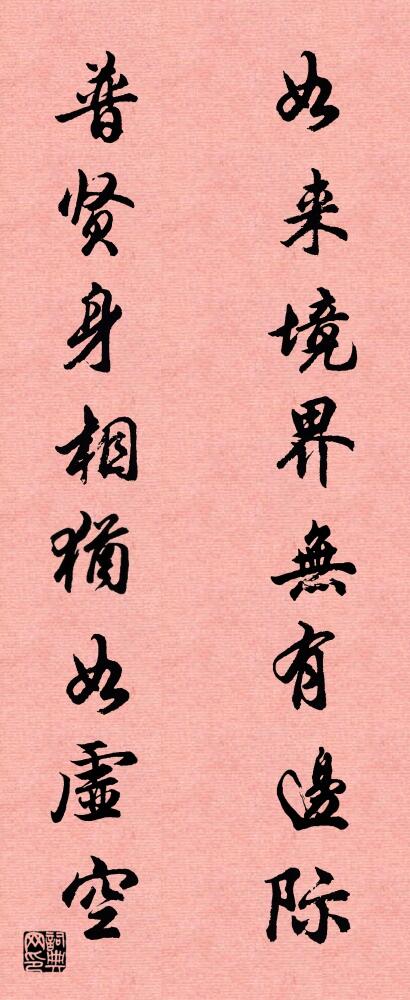 如来境界無有邊际
普贤身相猶如虚空
詞典网印